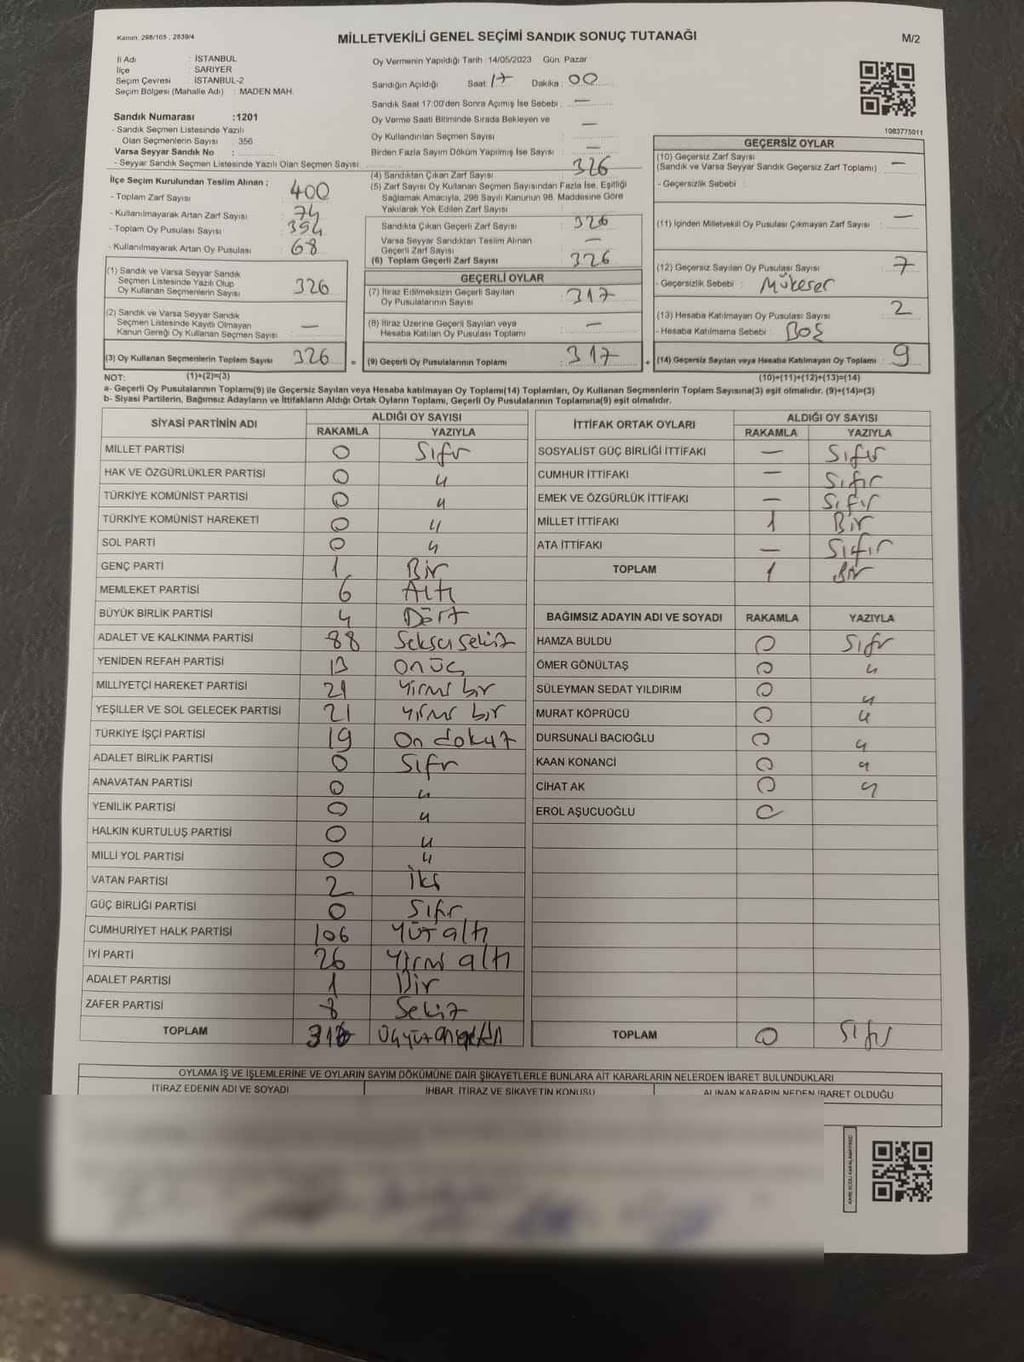 Kanun, 298/105 , 2839/4
MİLLETVEKİLİ GENEL SEÇİMİ SANDIK SONUÇ TUTANAĞI
M/2
İl Adı : İSTANBUL
İlçe : SARIYER
Seçim Çevresi : İSTANBUL-2
Seçim Bölgesi (Mahalle Adı) : MADEN MAH.
Sandık Numarası :1201
- Sandık Seçmen Listesinde Yazılı
Olan Seçmenlerin Sayısı : 356
Varsa Seyyar Sandık No :
- Seyyar Sandık Seçmen Listesinde Yazılı Olan Seçmen Sayısı :
Oy Vermenin Yapıldığı Tarih : 14/05/2023 Gün: Pazar
Sandığın Açıldığı Saat 17 Dakika : 00
Sandık Saat 17:00'den Sonra Açılmış İse Sebebi : —
Oy Verme Saati Bitiminde Sırada Bekleyen ve
Oy Kullandırılan Seçmen Sayısı —
Birden Fazla Sayım Döküm Yapılmış İse Sayısı : —
1083775011
İlçe Seçim Kurulundan Teslim Alınan ;
- Toplam Zarf Sayısı : 400
- Kullanılmayarak Artan Zarf Sayısı : 74
- Toplam Oy Pusulası Sayısı : 394
- Kullanılmayarak Artan Oy Pusulası : 68
(1) Sandık ve Varsa Seyyar Sandık
Seçmen Listesinde Yazılı Olup
Oy Kullanan Seçmenlerin Sayısı 326
(2) Sandık ve Varsa Seyyar Sandık
Seçmen Listesinde Kayıtlı Olmayan
Kanun Gereği Oy Kullanan Seçmen Sayısı —
(3) Oy Kullanan Seçmenlerin Toplam Sayısı 326
(4) Sandıktan Çıkan Zarf Sayısı : 326
(5) Zarf Sayısı Oy Kullanan Seçmen Sayısından Fazla İse, Eşitliği
Sağlamak Amacıyla, 298 Sayılı Kanunun 98. Maddesine Göre
Yakılarak Yok Edilen Zarf Sayısı :
Sandıkta Çıkan Geçerli Zarf Sayısı 326
Varsa Seyyar Sandıktan Teslim Alınan
Geçerli Zarf Sayısı —
(6) Toplam Geçerli Zarf Sayısı 326
GEÇERLİ OYLAR
(7) İtiraz Edilmeksizin Geçerli Sayılan
Oy Pusulalarının Sayısı : 317
(8) İtiraz Üzerine Geçerli Sayılan veya
Hesaba Katılan Oy Pusulası Toplamı —
= (9) Geçerli Oy Pusulalarının Toplamı 317
GEÇERSİZ OYLAR
(10) Geçersiz Zarf Sayısı
(Sandık ve Varsa Seyyar Sandık Geçersiz Zarf Toplamı) —
- Geçersizlik Sebebi :
(11) İçinden Milletvekili Oy Pusulası Çıkmayan Zarf Sayısı —
(12) Geçersiz Sayılan Oy Pusulası Sayısı 7
- Geçersizlik Sebebi : Mükerer
(13) Hesaba Katılmayan Oy Pusulası Sayısı 2
- Hesaba Katılmama Sebebi : Boş
+ (14) Geçersiz Sayılan veya Hesaba Katılmayan Oy Toplamı 9
NOT: (1)+(2)=(3) (10)+(11)+(12)+(13)=(14)
a- Geçerli Oy Pusulalarının Toplamı(9) ile Geçersiz Sayılan veya Hesaba katılmayan Oy Toplamı(14) Toplamları, Oy Kullanan Seçmenlerin Toplam Sayısına(3) eşit olmalıdır. (9)+(14)=(3)
b- Siyasi Partilerin, Bağımsız Adayların ve İttifakların Aldığı Ortak Oyların Toplamı, Geçerli Oy Pusulalarının Toplamına(9) eşit olmalıdır.
SİYASİ PARTİNİN ADI ALDIĞI OY SAYISI
RAKAMLA YAZIYLA
MİLLET PARTİSİ 0 Sıfır
HAK VE ÖZGÜRLÜKLER PARTİSİ 0 "
TÜRKİYE KOMÜNİST PARTİSİ 0 "
TÜRKİYE KOMÜNİST HAREKETİ 0 "
SOL PARTİ 0 "
GENÇ PARTİ 1 Bir
MEMLEKET PARTİSİ 6 Altı
BÜYÜK BİRLİK PARTİSİ 4 Dört
ADALET VE KALKINMA PARTİSİ 88 Seksen sekiz
YENİDEN REFAH PARTİSİ 13 on üç
MİLLİYETÇİ HAREKET PARTİSİ 21 Yirmi bir
YEŞİLLER VE SOL GELECEK PARTİSİ 21 Yirmi bir
TÜRKİYE İŞÇİ PARTİSİ 19 On dokuz
ADALET BİRLİK PARTİSİ 0 Sıfır
ANAVATAN PARTİSİ 0 "
YENİLİK PARTİSİ 0 "
HALKIN KURTULUŞ PARTİSİ 0 "
MİLLİ YOL PARTİSİ 0 "
VATAN PARTİSİ 2 İki
GÜÇ BİRLİĞİ PARTİSİ 0 Sıfır
CUMHURİYET HALK PARTİSİ 106 Yüz altı
İYİ PARTİ 26 Yirmi altı
ADALET PARTİSİ 1 Bir
ZAFER PARTİSİ 8 Sekiz
TOPLAM 316
İTTİFAK ORTAK OYLARI ALDIĞI OY SAYISI
RAKAMLA YAZIYLA
SOSYALİST GÜÇ BİRLİĞİ İTTİFAKI — Sıfır
CUMHUR İTTİFAKI — Sıfır
EMEK VE ÖZGÜRLÜK İTTİFAKI — Sıfır
MİLLET İTTİFAKI 1 Bir
ATA İTTİFAKI — Sıfır
TOPLAM 1 Bir
BAĞIMSIZ ADAYIN ADI VE SOYADI RAKAMLA YAZIYLA
HAMZA BULDU 0 Sıfır
ÖMER GÖNÜLTAŞ 0 "
SÜLEYMAN SEDAT YILDIRIM 0 "
MURAT KÖPRÜCÜ 0 "
DURSUNALİ BACIOĞLU 0 "
KAAN KONANCİ 0 "
CİHAT AK 0 "
EROL AŞUCUOĞLU 0
TOPLAM 0 Sıfır
OYLAMA İŞ VE İŞLEMLERİNE VE OYLARIN SAYIM DÖKÜMÜNE DAİR ŞİKAYETLERLE BUNLARA AİT KARARLARIN NELERDEN İBARET BULUNDUKLARI
İTİRAZ EDENİN ADI VE SOYADI İHBAR, İTİRAZ VE ŞİKAYETİN KONUSU ALINAN KARARIN NEDEN İBARET OLDUĞU